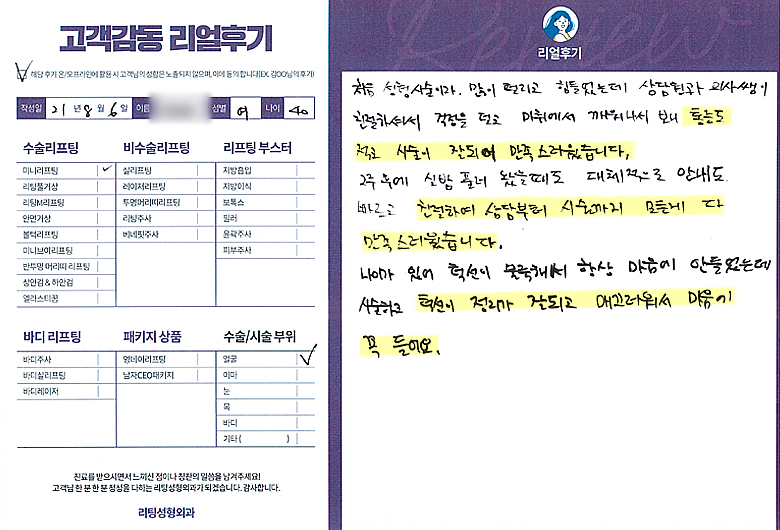 고객감동 리얼후기
해당 후기 온/오프라인에 활용 시 고객님의 성함은 노출되지 않으며, 이에 동의합니다(EX. 김OO님의 후기)
작성일 21년 8월 6일 이름 성별 여 나이 40
수술리프팅
미니리프팅
리팅풀거상
리팅M리프팅
안면거상
볼턱리프팅
미니브이리프팅
반투명 머리띠 리프팅
상안검 & 하안검
엘라스티꿈
비수술리프팅
실리프팅
레이저리프팅
투명머리띠리프팅
리팅주사
버네핏주사
리프팅 부스터
지방흡입
지방이식
보톡스
필러
윤곽주사
피부주사
바디 리프팅
바디주사
바디실리프팅
바디레이저
패키지 상품
영데이리프팅
남자CEO패키지
수술/시술 부위
얼굴
이마
눈
목
바디
기타 ( )
진료를 받으시면서 느끼신 점이나 칭찬의 말씀을 남겨주세요!
고객님 한 분 한 분 정성을 다하는 리팅성형외과가 되겠습니다. 감사합니다.
리팅성형외과
Review
리얼후기
처음 성형시술이라. 많이 떨리고 힘들었는데 상담원과 의사쌤이
친절하셔서 걱정을 덜고 마취에서 깨워나서 보니 흉터도
적고 시술이 잘되어 만족스러웠습니다.
2주 후에 실밥 풀러 왔을때도 대체적으로 안내도
바르고 친절하여 상담부터 시술까지 모든게 다
만족스러웠습니다.
나이가 있어 턱선이 불룩해서 항상 마음에 안들었는데
시술하고 턱선이 정리가 잘되고 매끄러워서 마음에
꼭 들어요.